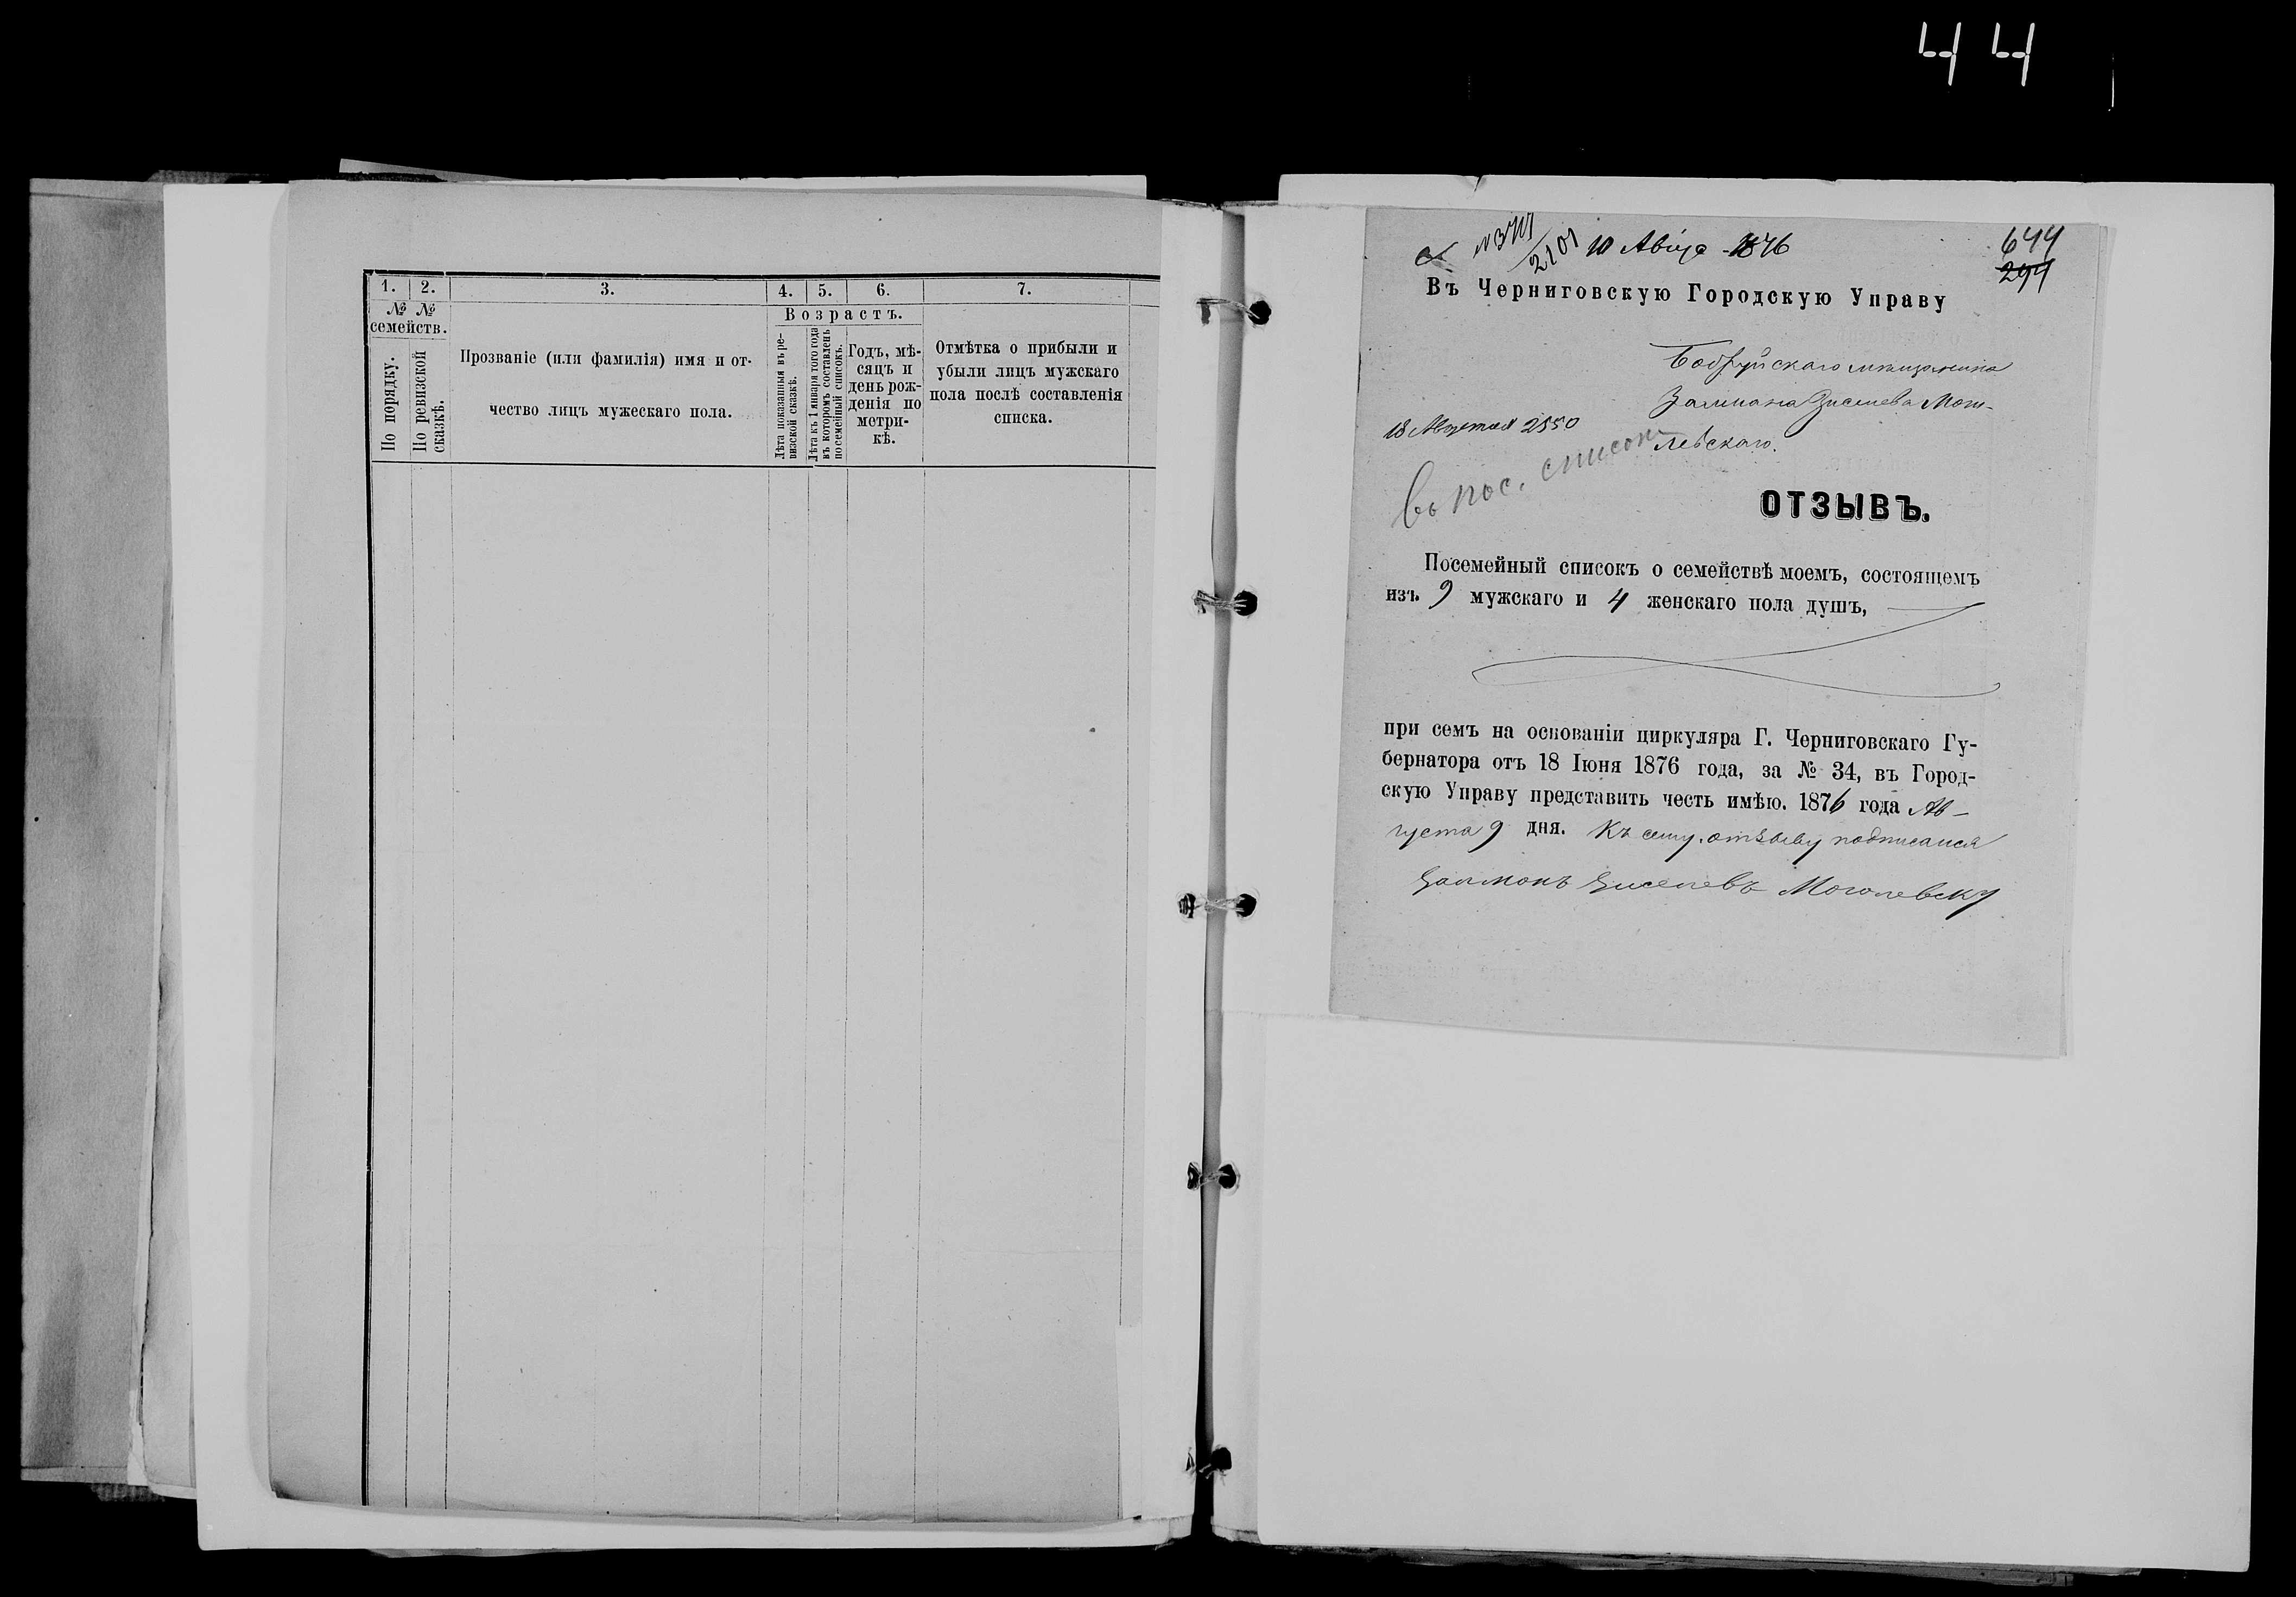 44
1. 2. 3. 4. 5. 6. 7.
№ №
семействъ.
По порядку.
По ревизской
сказкѣ.
Прозваніе (или фамилія) имя и от-
чество лицъ мужескаго пола.
Возрастъ.
Лѣта показанныя въ ре-
визской сказкѣ.
Лѣта къ 1 января того года
въ которомъ составленъ
посемейный списокъ.
Годъ, мѣ-
сяцъ и
день рож-
денія по
метри-
кѣ.
Отмѣтка о прибыли и
убыли лицъ мужскаго
пола послѣ составленія
списка.
2101 10 Авгус 1876
644
294
Въ Черниговскую Городскую Управу
Бобруйскаго мѣщанина
Залмана Зиселева Мог-
левскаго.
18 Августа 2550
въ пос. список
ОТЗЫВЪ.
Посемейный списокъ о семействѣ моемъ, состоящемъ
изъ 9 мужскаго и 4 женскаго пола душъ,
при семъ на основаніи циркуляра Г. Черниговскаго Гу-
бернатора отъ 18 Іюня 1876 года, за № 34, въ Город-
скую Управу представить честь имѣю. 1876 года Ав-
густа 9 дня. Къ сему отзыву подписался
Залмонъ Зиселевъ Моголевску